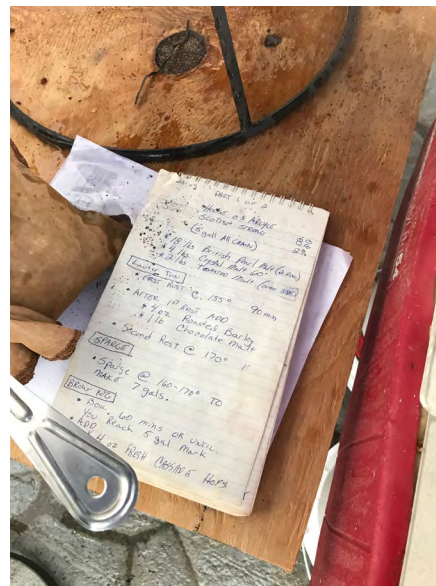 PART 1 OF 2
HOUSE OS ARGYLE
SCOTISH STRONG
(5 gall All GRAIN)
* 18 lbs British Pale Malt (2 Row)
* 4 lbs Crystal Malt 60°
* 2 lbs Toasted Malt
Lauter Tun
• FIRST REST @ 155° 90 min
• AFTER 1st REST ADD
* 4 oz Roasted Barley
* 1 lb Chocolate Malt
• Second Rest @ 170°
SPARGE
• Sparge @ 160-170° TO
MAKE 7 gals.
• Boil 60 mins OR UNTIL
You Reach 5 gal MARK
• ADD
4 oz FRESH CASCADE HOPS